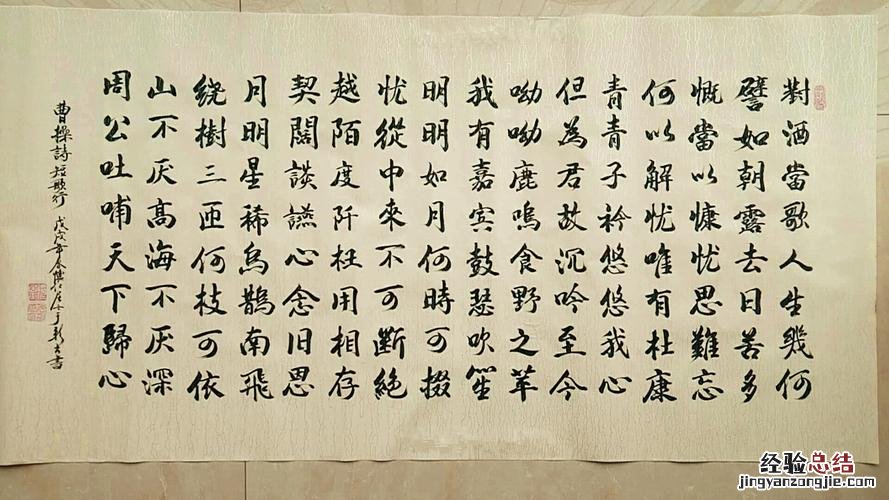 對酒當歌人生幾何
譬如朝露去日苦多
慨當以慷忧思難忘
何以解忧唯有杜康
青青子衿悠悠我心
但為君故沉吟至今
呦呦鹿鳴食野之苹
我有嘉宾鼓瑟吹笙
明明如月何時可掇
忧從中來不可斷絕
越陌度阡枉用相存
契闊談讌心念旧恩
月明星稀烏鵲南飛
绕樹三匝何枝可依
山不厌高海不厌深
周公吐哺天下歸心
曹操詩短歌行 戊戌年 書
经验总结
jingyanzongjie.com